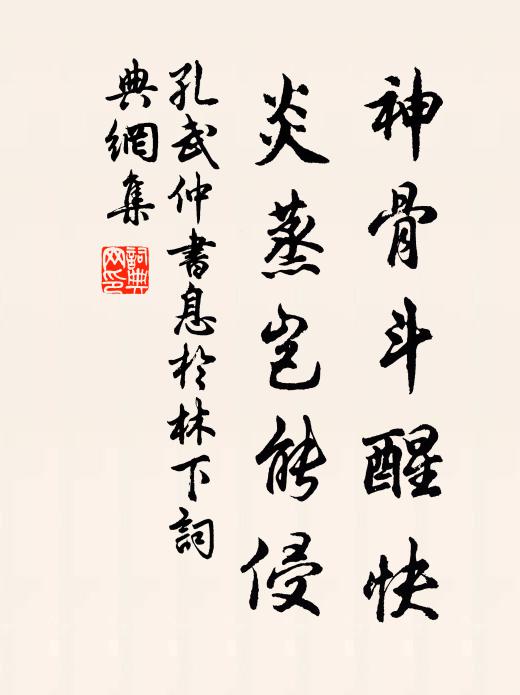 神骨斗醒快
炎蒸岂能侵
孔武仲書息於林下詞
典網集
詞典
网印